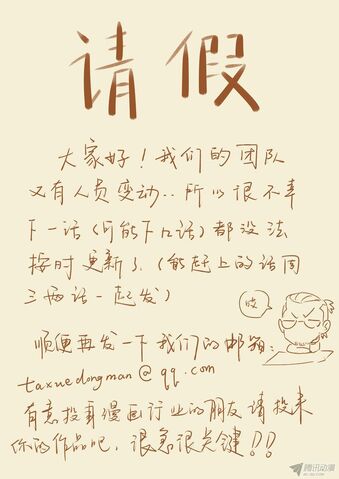 请假
大家好！我们的团队
又有人员变动..所以很不幸
下一话(可能下几话)都没法
按时更新了.(能赶上的话周
三两话一起发)
哎
顺便再发一下我们的邮箱:
taxuedongman@qq.com
有意投身漫画行业的朋友请投来
你的作品吧，很急很关键!!
腾讯动漫